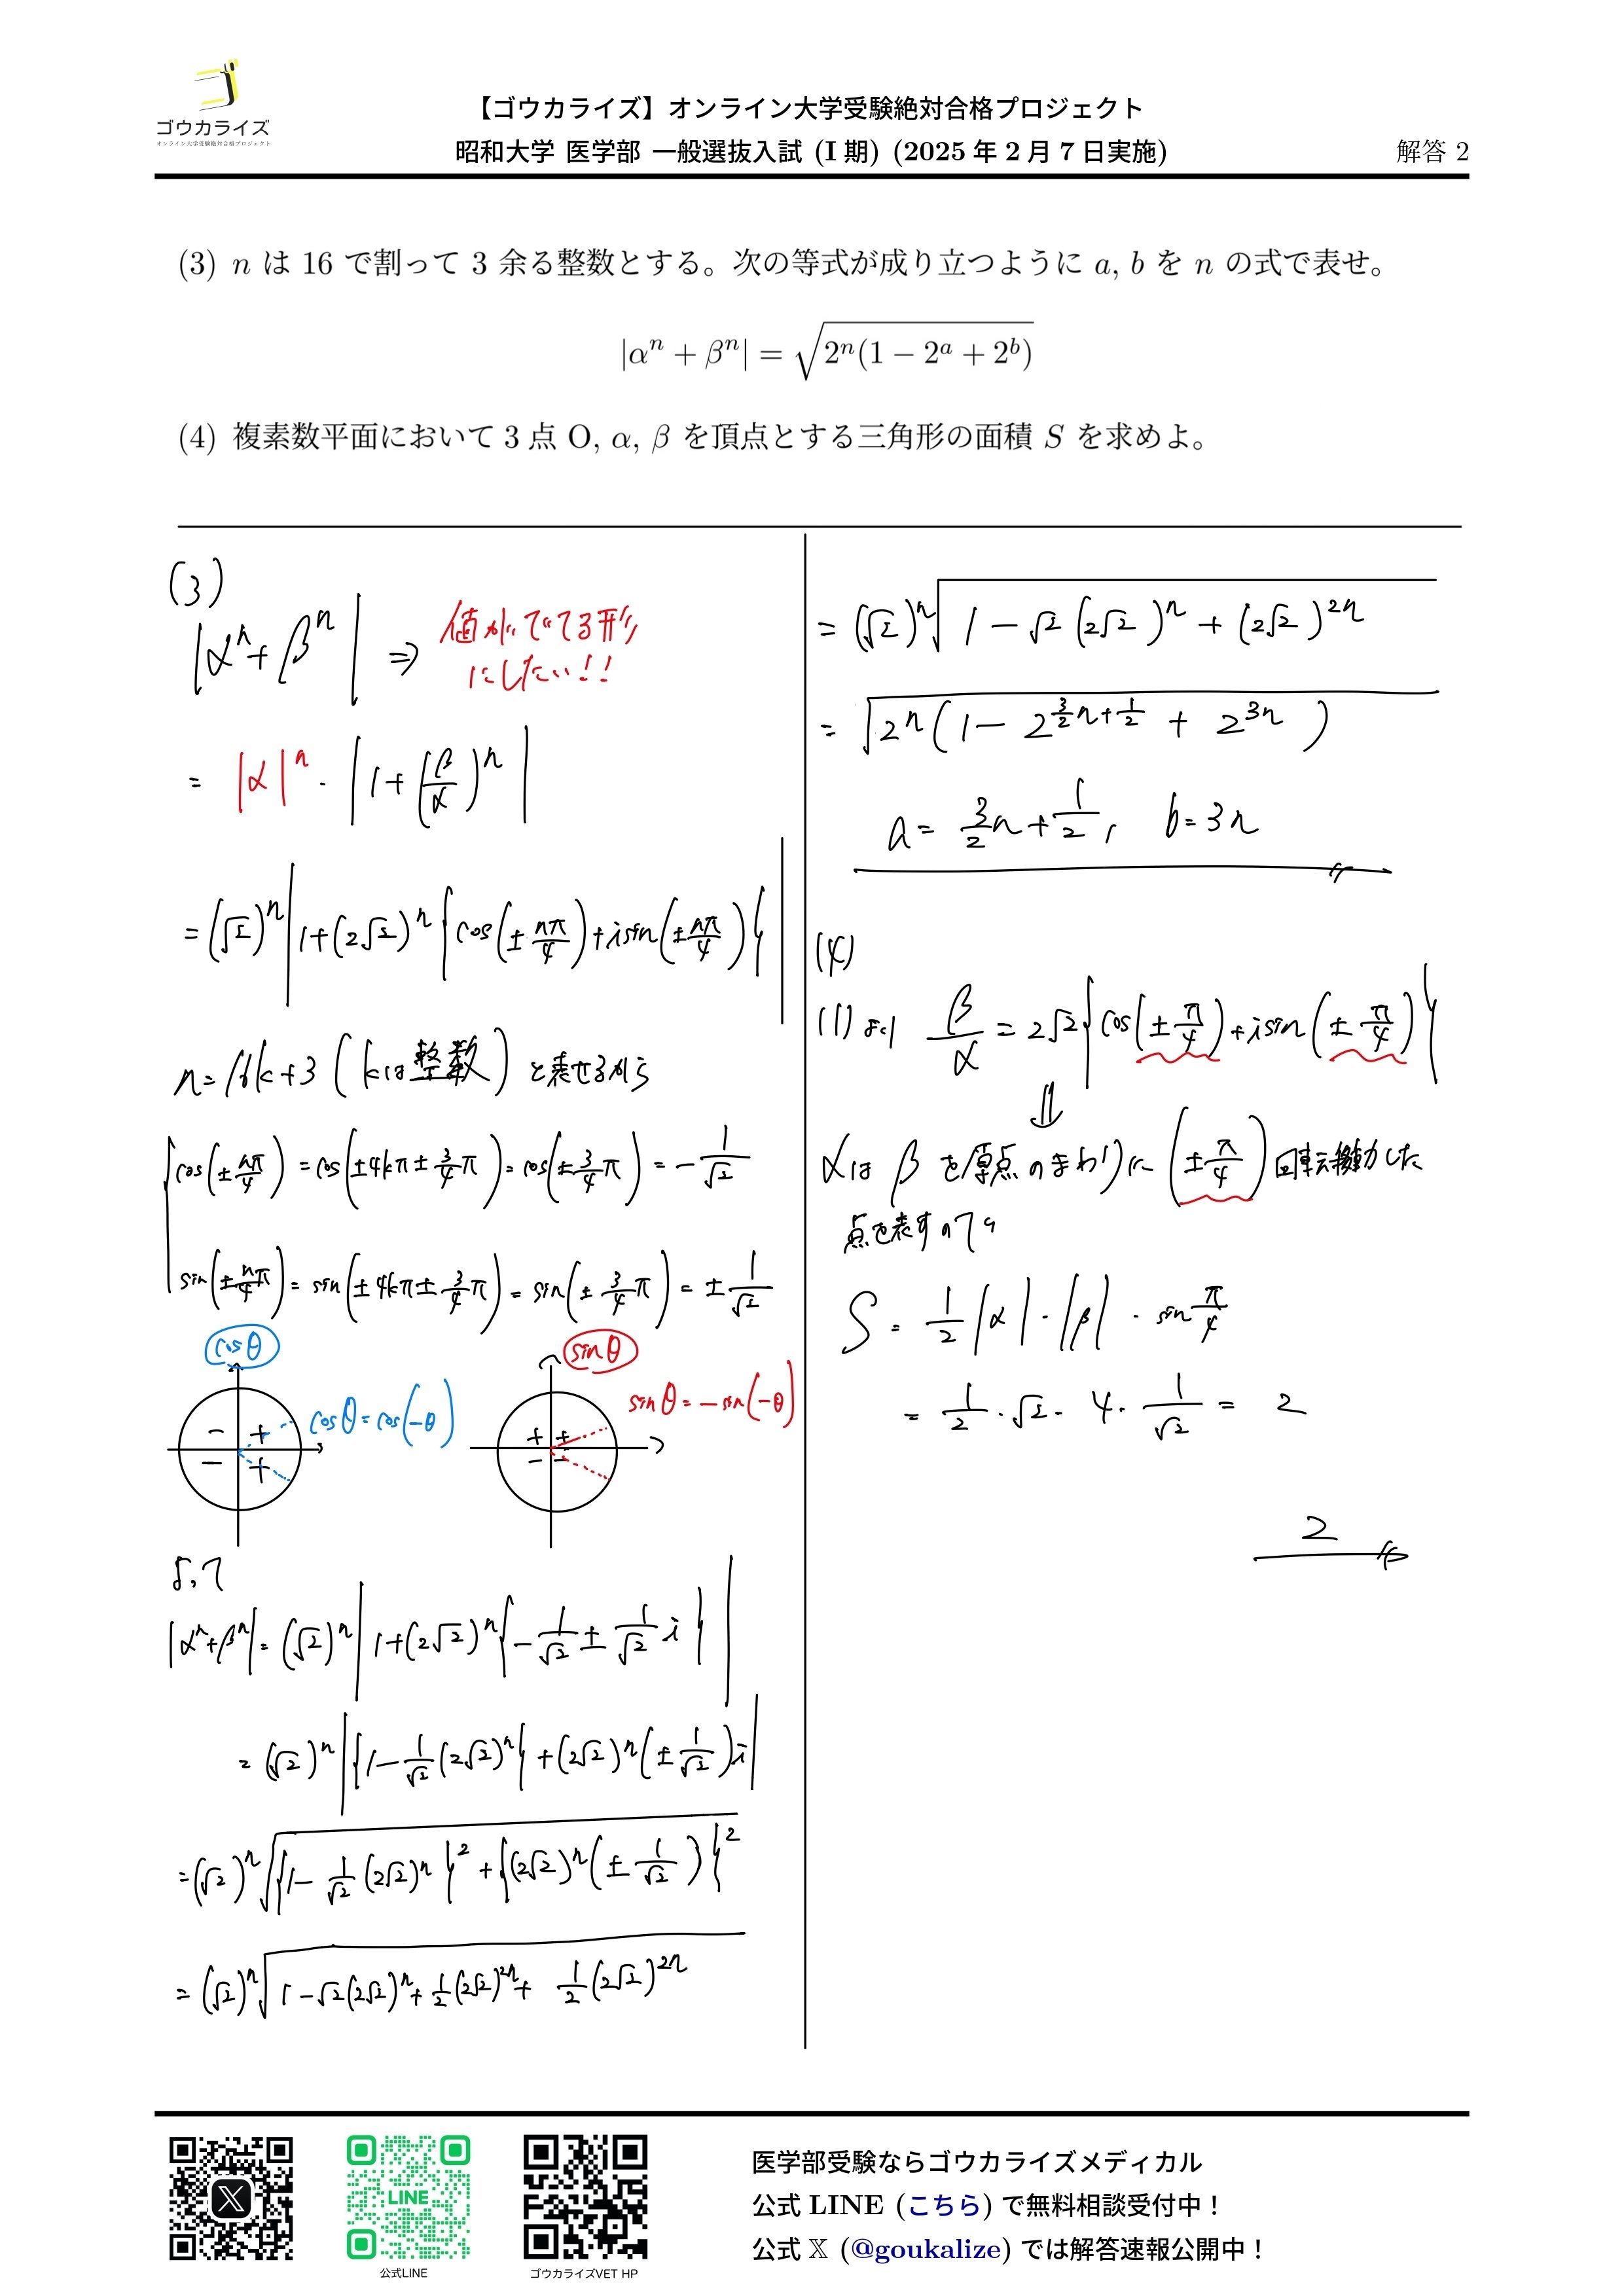 ゴウカライズ
オンライン大学受験絶対合格プロジェクト
【ゴウカライズ】オンライン大学受験絶対合格プロジェクト
昭和大学 医学部 一般選抜入試 (I 期) (2025 年 2 月 7 日実施)
解答 2
(3) n は 16 で割って 3 余る整数とする。次の等式が成り立つように a, b を n の式で表せ。
|αⁿ + βⁿ| = √(2ⁿ(1 − 2ᵃ + 2ᵇ))
(4) 複素数平面において 3 点 O, α, β を頂点とする三角形の面積 S を求めよ。
(3)
|αⁿ + βⁿ| ⇒ 値がでてる形
にしたい!!
= |α|ⁿ · |1 + (β/α)ⁿ|
= (√2)ⁿ |1 + (2√2)ⁿ {cos(± nπ/4) + i sin(± nπ/4)}|
n = 16k + 3 (kは整数) と表せるから
cos(± nπ/4) = cos(± 4kπ ± 3/4 π) = cos(± 3/4 π) = − 1/√2
sin(± n/4 π) = sin(± 4kπ ± 3/4 π) = sin(± 3/4 π) = ± 1/√2
cosθ
sinθ
cosθ = cos(−θ)
sinθ = −sin(−θ)
− +
− +
+ +
− −
よって
|αⁿ + βⁿ| = (√2)ⁿ |1 + (2√2)ⁿ {− 1/√2 ± 1/√2 i}|
= (√2)ⁿ |{1 − 1/√2 (2√2)ⁿ} + (2√2)ⁿ (± 1/√2) i|
= (√2)ⁿ √({1 − 1/√2 (2√2)ⁿ}² + {(2√2)ⁿ (± 1/√2)}²)
= (√2)ⁿ √(1 − √2 (2√2)ⁿ + 1/2 (2√2)²ⁿ + 1/2 (2√2)²ⁿ)
= (√2)ⁿ √(1 − √2 (2√2)ⁿ + (2√2)²ⁿ)
= √(2ⁿ (1 − 2^(3/2 n + 1/2) + 2³ⁿ))
a = 3/2 n + 1/2, b = 3n
(4)
(1)より β/α = 2√2 {cos(± π/4) + i sin(± π/4)}
⇓
αは β を原点のまわりに (± π/4) 回転移動した
点を表すので
S = 1/2 |α| · |β| · sin π/4
= 1/2 · √2 · 4 · 1/√2 = 2
2
LINE
公式LINE
ゴウカライズVET HP
医学部受験ならゴウカライズメディカル
公式 LINE (こちら) で無料相談受付中！
公式 𝕏 (@goukalize) では解答速報公開中！